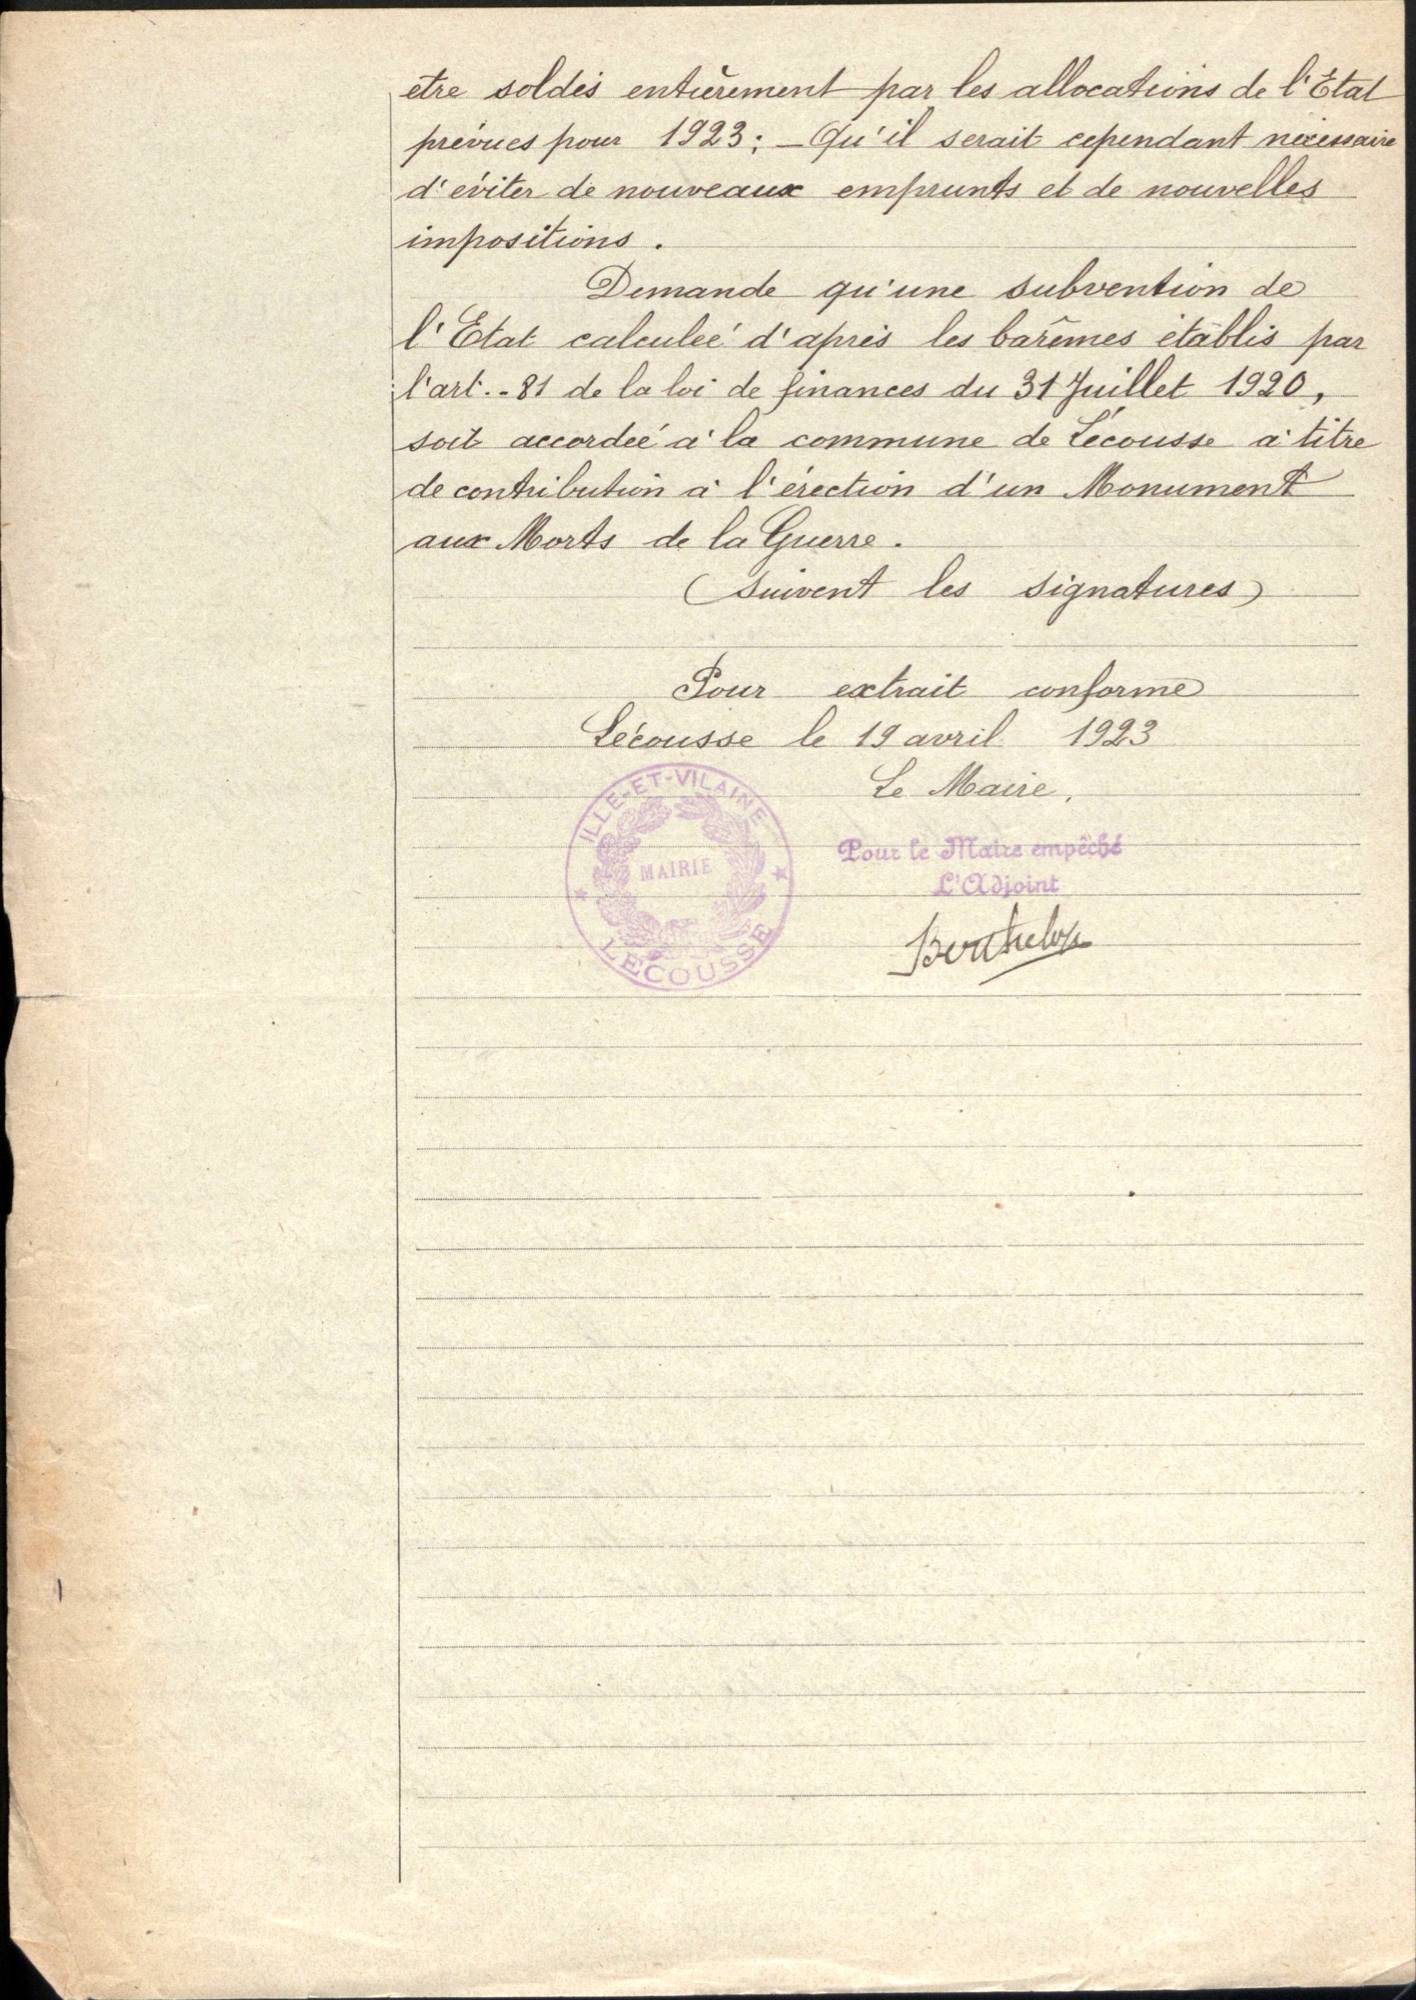 être soldés entièrement par les allocations de l'État
prévues pour 1923; - Qu'il serait cependant nécessaire
d'éviter de nouveaux emprunts et de nouvelles
impositions.
Demande qu'une subvention de
l'État calculeé d'après les barêmes établis par
l'art.-81 de la loi de finances du 31 Juillet 1920,
soit accordeé à la commune de Lécousse à titre
de contribution à l'érection d'un Monument
aux Morts de la Guerre.
(suivent les signatures)
Pour extrait conforme
Lécousse le 19 avril 1923
Le Maire,
ILLE-ET-VILAINE
MAIRIE
LECOUSSE
Pour le Maire empêché
L'Adjoint